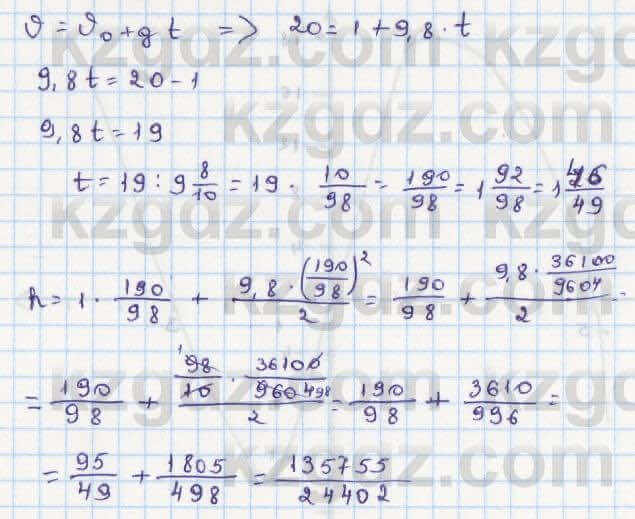 ϑ = ϑ₀ + g t => 20 = 1 + 9,8 · t
9,8 t = 20 - 1
9,8 t = 19
t = 19 : 9 8/10 = 19 · 10/98 = 190/98 = 1 92/98 = 1 46/49
h = 1 · 190/98 + (9,8 · (190/98)²)/2 = 190/98 + (9,8 · 36100/9604)/2 =
= 190/98 + (98/10 · 36100/9604)/2 = 190/98 + 3610/996 =
= 95/49 + 1805/498 = 135755/24402
kzgdz.com